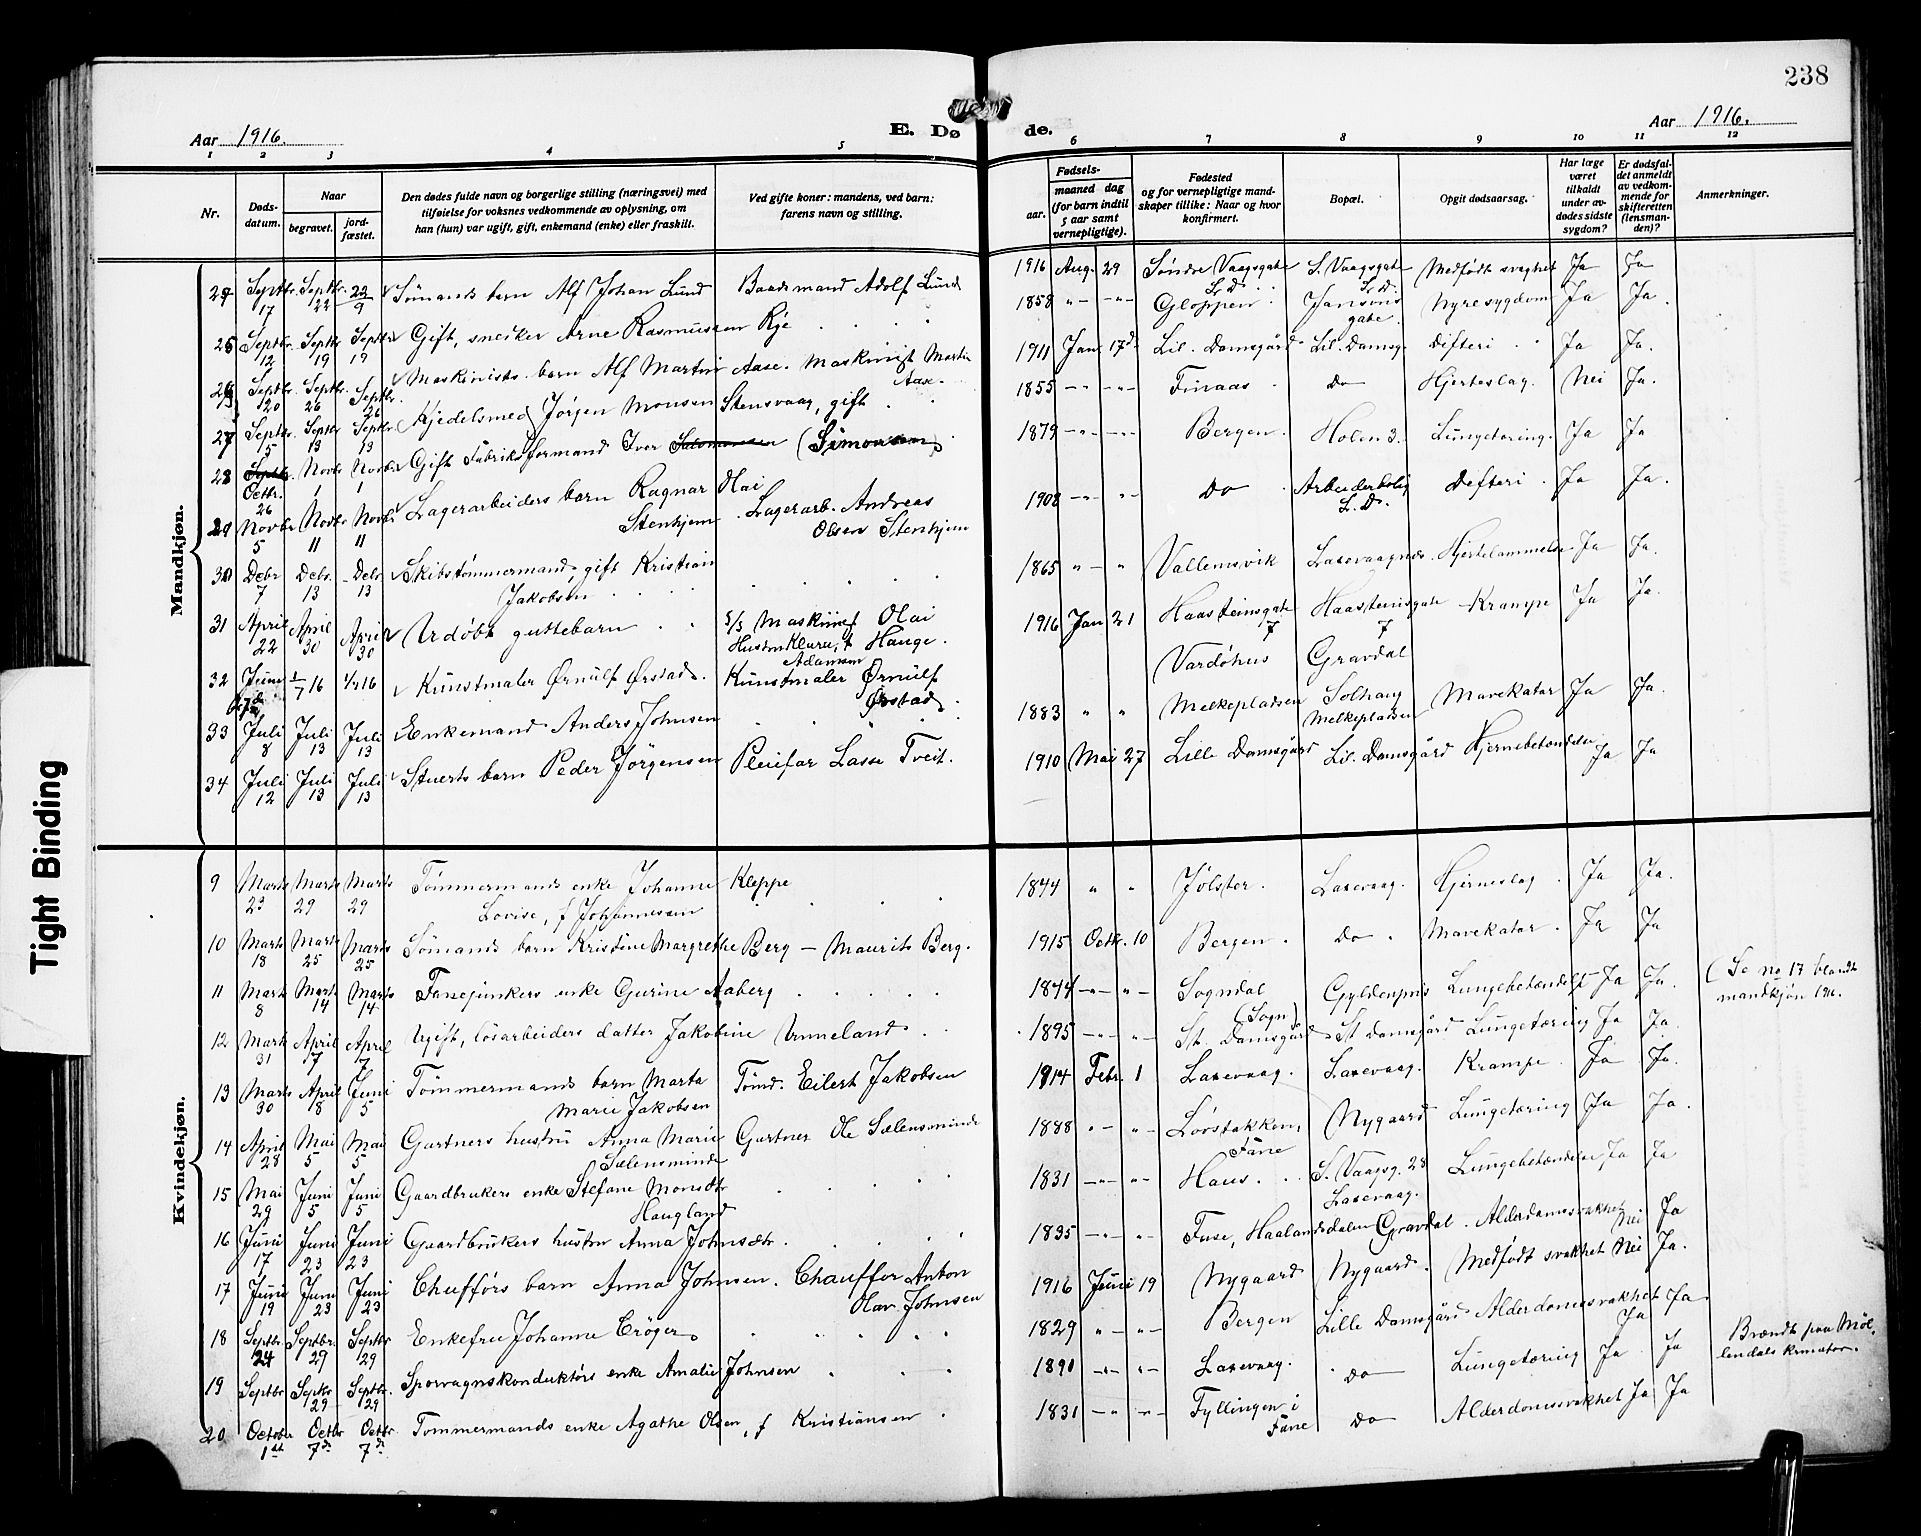 238
Aar 1916. E. Dø de. Aar 1916.
1 2 3 4 5 6 7 8 9 10 11 12
Nr.
Døds-
datum.
Naar
begravet.
jord-
fæstet.
Den dødes fulde navn og borgerlige stilling (næringsvei) med
tilføielse for voksnes vedkommende av oplysning, om
han (hun) var ugift, gift, enkemand (enke) eller fraskilt.
Ved gifte koner: mandens, ved barn:
farens navn og stilling.
Fødsels-
aar.
maaned dag
(for barn indtil
5 aar samt
vernepligtige).
Fødested
og for vernepligtige mand-
skaper tillike: Naar og hvor
konfirmert.
Bopæl.
Opgit dødsaarsag.
Har læge
været
tilkaldt
under av-
dødes sidste
sygdom?
Er dødsfal-
det anmeldt
av vedkom-
mende for
skifteretten
(lensman-
den)?
Anmerkninger.
Mandkjøn.
24 Septbr. 17 Septbr. 22 22/9 Sømands barn Alf Johan Lund Baadsmand Adolf Lund 1916 Aug. 29 Søndre Vaagsgate S. Vaagsgate Medfødt svaghet Ja Ja
25 Septbr. 12 Septbr 19 Septbr 19 Gift, snekker Arne Rasmussen Rye 1858 Gloppen Jansons gate. Nyresygdom Ja Ja.
26 Septbr. 20 Septbr. 26 Septbr. 26 Maskinists barn Alf Martin Aase. Maskinist Martin Aase. 1911 Jan. 17de Lil. Damsgård Lil. Damsg. Difteri Ja Ja.
27 Septbr. 5 Septbr 13 Septbr. 13 Kjedelsmed Jørgen Monsen Stensvaag, gift 1855 Finaas Do Hjerteslag. Nei Ja.
28 Septbr. Octbr. 26 Novbr 1 Novbr 1 Gift Fabrikformand Iver (Simonsen) 1879 Bergen. Holen 3. Lungetæring. Ja Ja
29 Novbr 5 Novbr 11 Novbr 11 Lagerarbeiders barn Ragnar Olai Stenhjem. Lagerarb. Andreas Olsen Stenhjem 1908 Do Arbeiderbolig L. D. Difteri Ja Ja.
30 Debr 7 Debr. 13 Debr. 13 Skibstømmermand, gift Kristian Jakobsen 1865 Vallemsvik Laxevaagnes Hjertelammelse Ja Ja.
31 April 22 April 30 April 30 Udøbt guttebarn S/S Maskinist Olai Hauge. Hustru Klara, f Adamsen 1916 Jan 21 Haasteinsgate 7 Haasteinsgate 7 Krampe Ja Ja.
32 Juni 1/7 16 1/7 16 Kunstmaler Ørnulf Ørstad. Kunstmaler Ørnulf Ørstad. Vardøhus Gravdal
33 Juli 8 Juli 13 Juli 13 Enkemand Anders Johnsen 1883 Melkepladsen Solhaug Melkepladsen Mavekatar Ja Ja.
34 Juli 12 Juli 13 Juli 13 Stuerts barn Peder Jørgensen Pleiefar Lasse Tveit. 1910 Mai 27 Lille Damsgård Lil. Damsgård Hjernebetændelse Ja Ja
Kvindekjøn.
9 Marts 23 Marts 29 Marts 29 Tømmermands enke Johanne Kleppe Lovise, f Johannessen 1844 Jølster. Laxevaag. Hjerneslag Ja Ja.
10 Marts 18 Marts 25 Marts 25 Sømands barn Kristine Margrethe Berg – Maurits Berg. 1915 Octb. 10 Bergen. Do Mavekatar. Ja Ja
11 Marts 8 Marts 14 Marts 14 Fanejunkers enke Gurine Aaberg 1844 Sogndal (Sogn) Gyldenpris Lungebetændelse Ja Ja. (Se no 17 blandt
mandkjøn 1916.
12 Marts 31 April 7 April 7 Ugift, løsarbeiders datter Jakobine Unneland. 1895 St. Damsgård St Damsgård Lungetæring Ja Ja.
13 Marts 30 April 8 Juni 5 Tømmermands barn Marta Marie Jakobsen Tømd. Eilert Jakobsen 1914 Febr. 1 Laxevaag. Laxevaag. Krampe Ja Ja.
14 April 28 Mai 5 Mai 5 Gartners hustru Anna Marie Sælensminde Gartner Ole Sælensminde 1888 Løvstakken, Fane Nygaard Lungetæring Ja Ja.
15 Mai 29 Juni 5 Juni 5 Gaardbrukers enke Stefane Monsdtr Haugland 1831 Haus. S. Vaagsg. 28 Laxevaag. Lungebetændelse Ja Ja
16 Juni 17 Juni 23 Juni 23 Gaardbrukers hustru Anna Johnsdtr. 1835 Fuse, Haalandsdalen Gravdal. Alderdomssvakhet Nei Ja
17 Juni 19 Juni 23 Juni 23 Chufførs barn Anna Johnsen. Chauffør Anton Olav Johnsen 1916 Juni 19 Nygaard Nygaard. Medfødt svakhet Nei Ja.
18 Septbr. 24 Septbr. 29 Septbr 29 Enkefru Johanne Crøger 1829 Bergen Lille Damsgård Alderdomssvakhet Ja Ja.
19 Septbr Septbr 29 Septbr. 29 Sporvagnskonduktørs enke Amalie Johnsen 1891 Laxevaag. do Lungetæring Ja Ja Brændt paa Møl-
lendals krmator.
20 October 1st Octbr 7de Octbr. 7de Tømmermands enke Agathe Olsen, f Kristiansen 1831 Fyllingen i Fane Do Alderdomssvakhet Ja Ja
Tight Binding